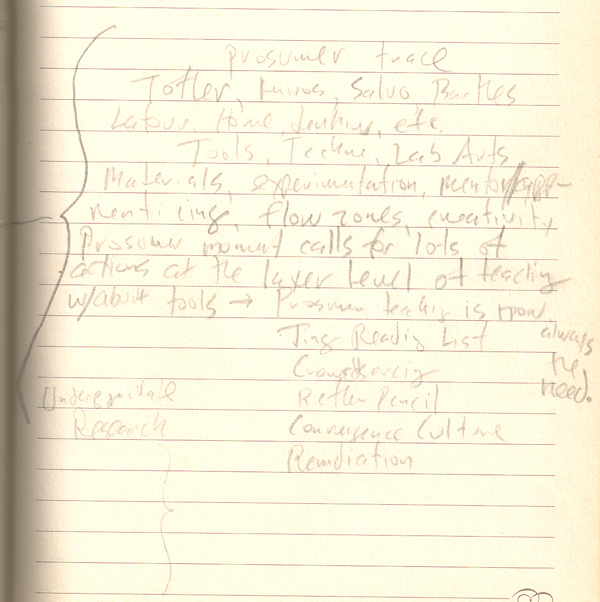 prosumer trace
Tofler, Salvo Barthes
Labour, Home, etc.
Tools, Techne, Lab Arts
Materials, experimentation, mentor/app-
renticing, flow zones, creativity
Prosumer moment calls for lots of
actions at the layer level of teaching
w/about tools → Prosumer teaching is
always
Ting Reading List
the
Crowdsourcing
need.
Undergraduate
Pencil
Research
Convergence Culture
Remediation